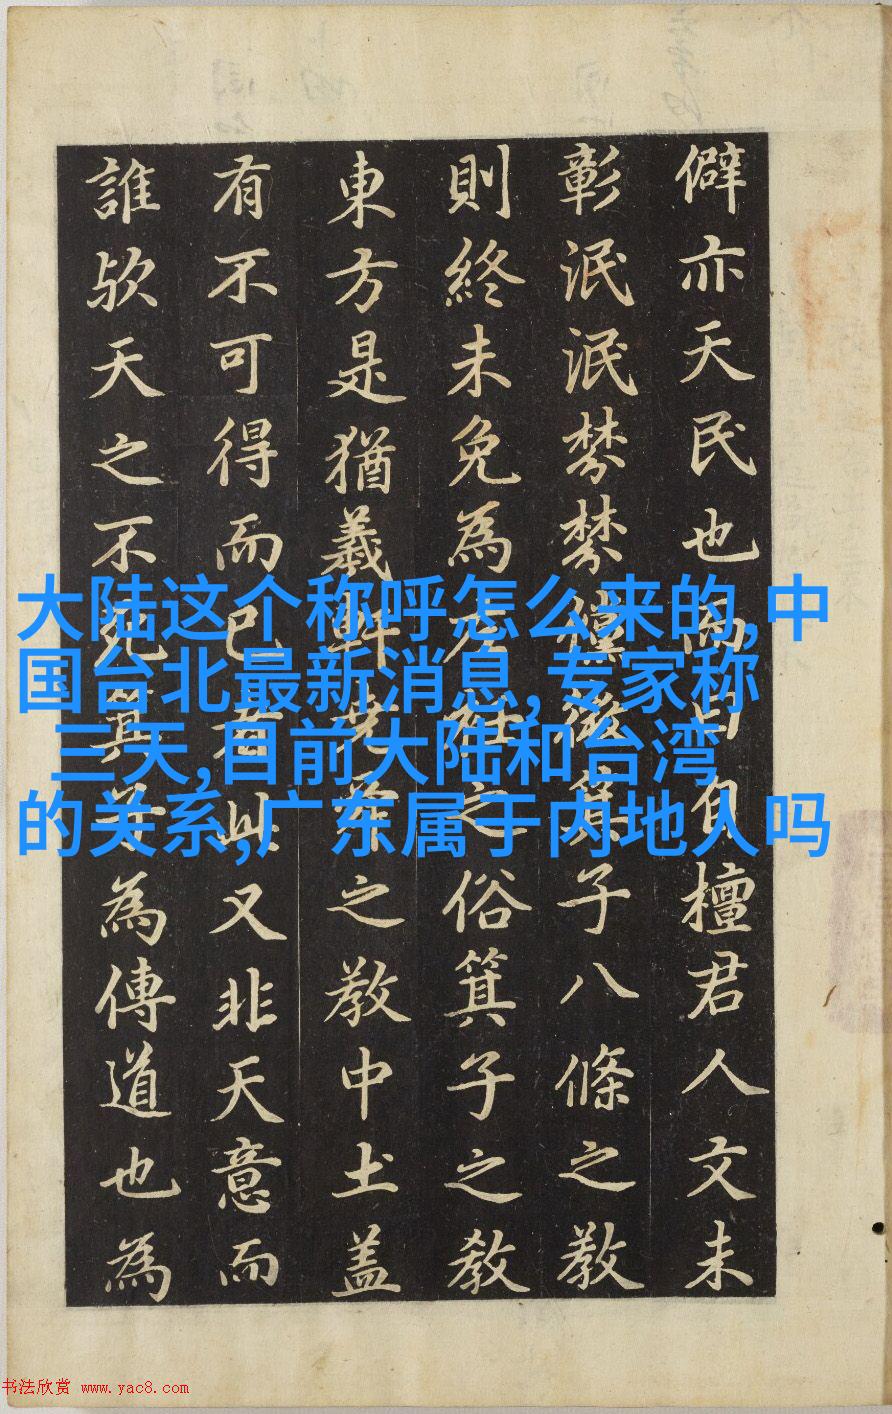 僻亦天民也自檀君人文未
彰泯泯棼棼僅徵箕子八條之教
則終未免為左衽之俗箕子之教
東方是猶羲軒堯舜之教中土盖
有不可得而已者此又非天意而
誰欤天之不死箕子為傳道也為
大陆这个称呼怎么来的,中
国台北最新消息,专家称
三天,目前大陆和台湾
的关系,广东属于内地人吗
书法欣赏 www.yac8.com